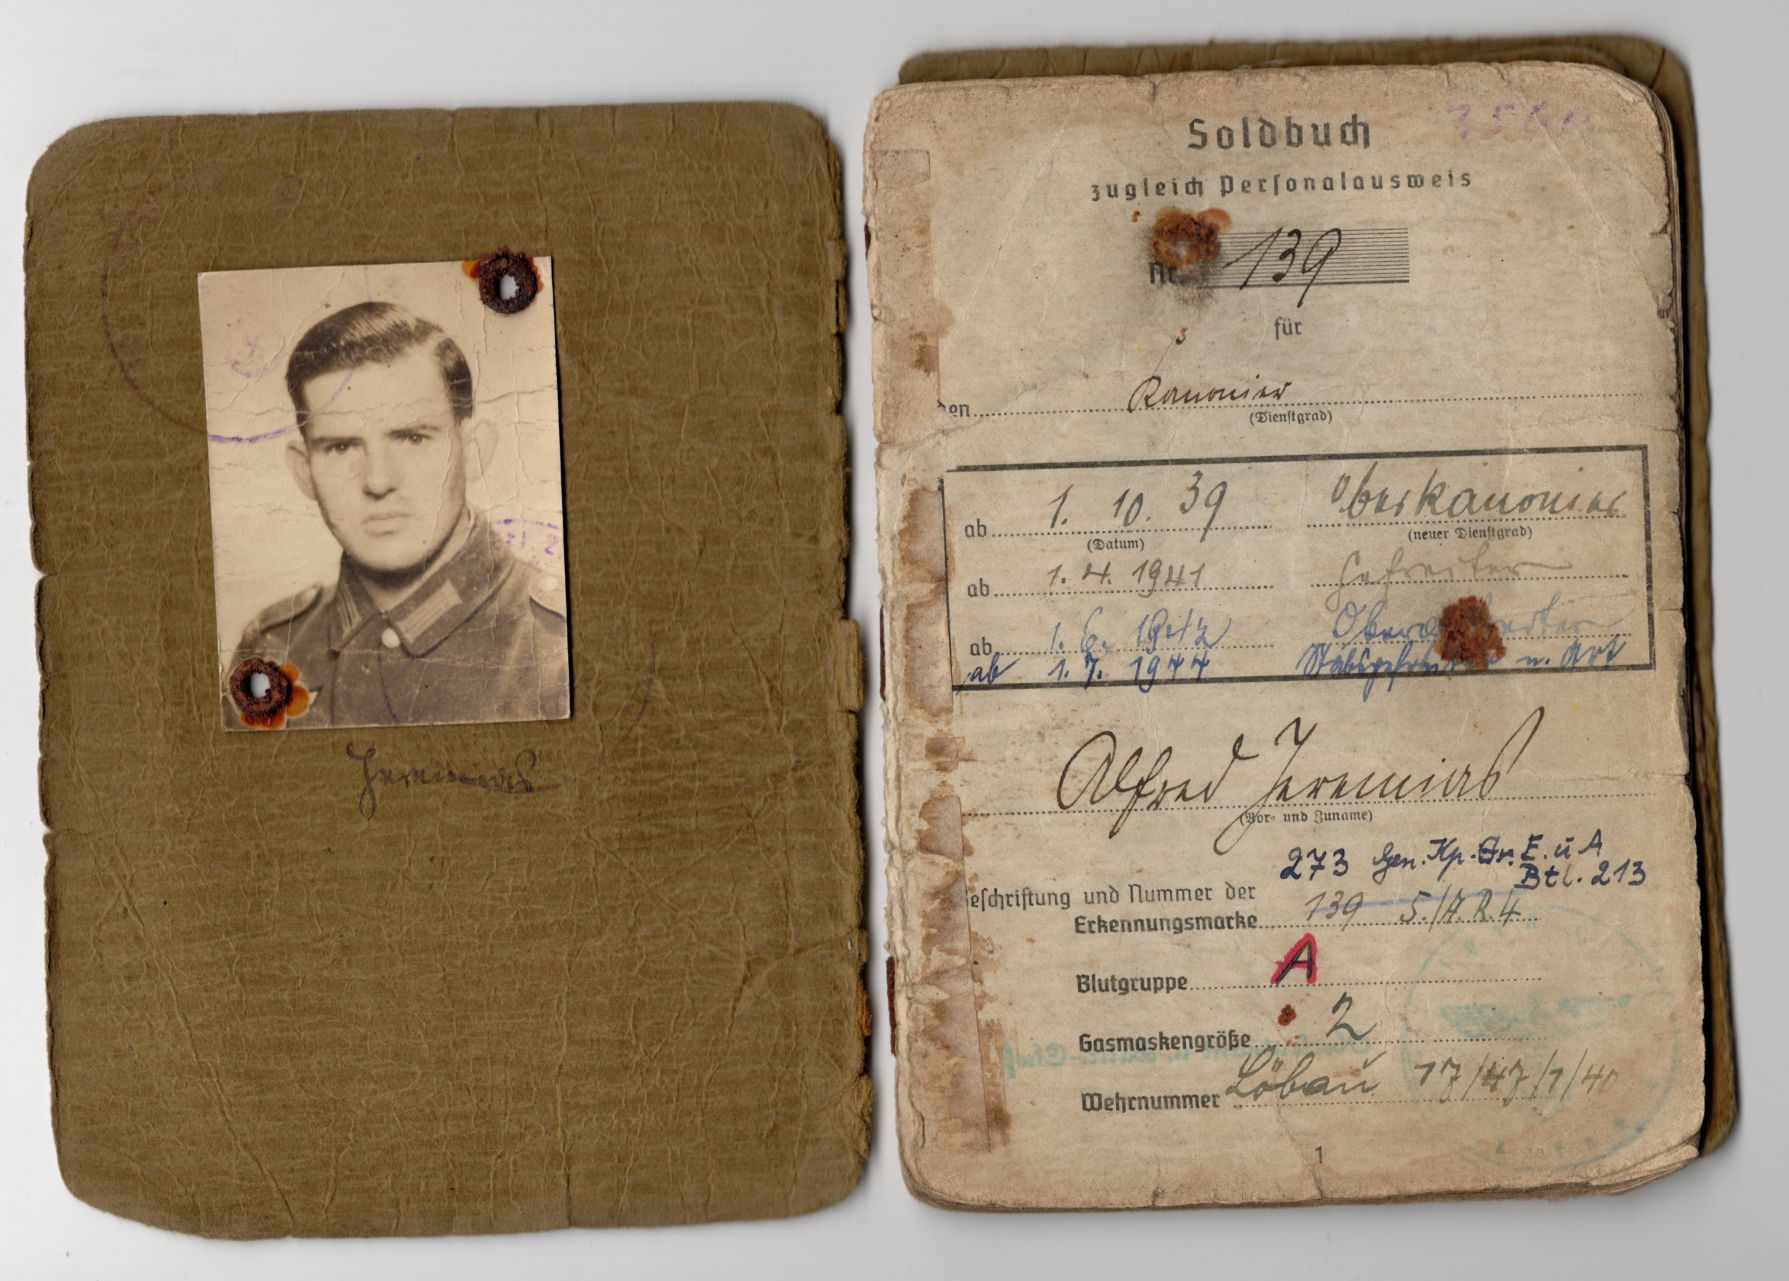 Jeremias
Soldbuch
zugleich Personalausweis
Nr. 139
für
den Kanonier
(Dienstgrad)
ab 1. 10. 39 Oberkanonier
(Datum) (neuer Dienstgrad)
ab 1. 4. 1941 Gefreiter
ab 1. 6. 1942 Obergefreiter
ab 1. 7. 1944 Stabsgefreiter u. Art
Alfred Jeremias
(Vor- und Zuname)
273 Gen. Kp. Gr. E. u A
Btl. 213
Beschriftung und Nummer der
Erkennungsmarke 139 5./A.R.4
Blutgruppe A
Gasmaskengröße 2
Wehrnummer Löbau 17/47/1/40
1